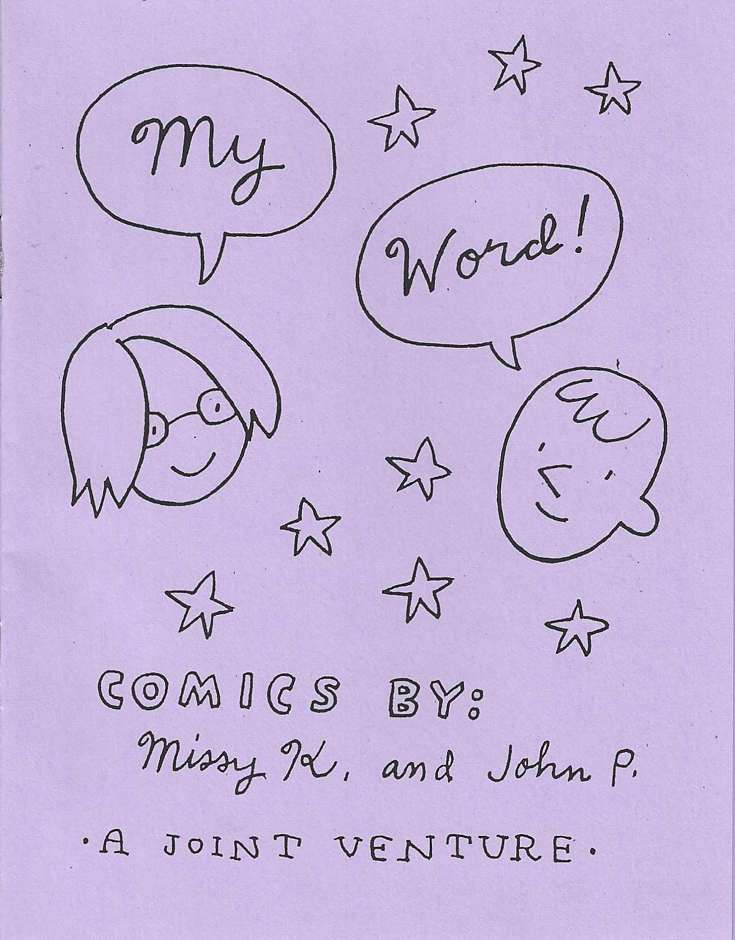 My
Word!
COMICS BY:
Missy K. and John P.
· A JOINT VENTURE ·